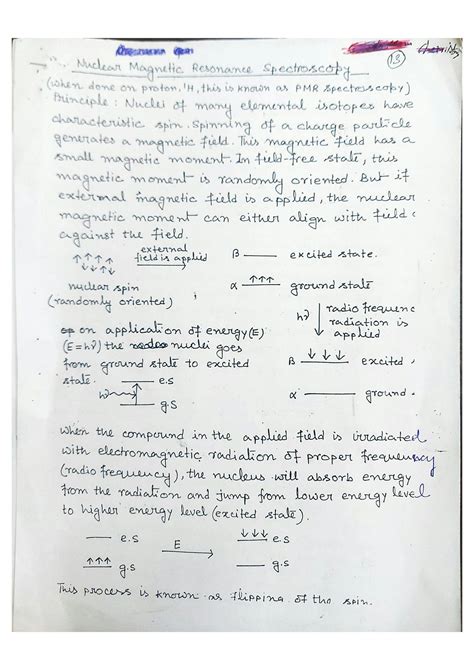 Chemistry
13
Nuclear Magnetic Resonance Spectroscopy
(when done on proton, ¹H, this is known as PMR spectroscopy)
Principle : Nuclei of many elemental isotopes have
characteristic spin. Spinning of a charge particle
generates a magnetic field. This magnetic field has a
small magnetic moment. In field-free state, this
magnetic moment is randomly oriented. But if
external magnetic field is applied, the nuclear
magnetic moment can either align with field
against the field.
↑↑↑↑ external field is applied → β — excited state.
↓↓↓
nuclear spin α ↑↑↑ ground state
(randomly oriented)
hν ↓ radio frequenc
radiation is
applied
on application of energy (E)
(E = hν) the nuclei goes
from ground state to excited
state.
β ↓↓↓ excited
hν e.s
g.s
α — ground
When the compound in the applied field is irradiated
with electromagnetic radiation of proper frequency
(radio frequency), the nucleus will absorb energy
from the radiation and jump from lower energy level
to higher energy level (excited state).
— e.s E → ↓↓↓ e.s
↑↑↑ g.s — g.s
This process is known as flipping of the spin.